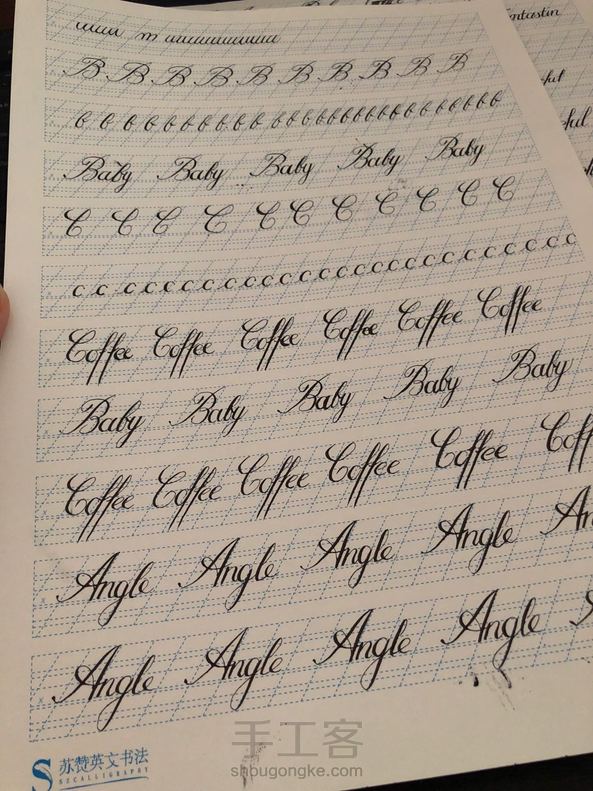 B B B B B B B B B B
b b b b b b b b b b b b b b b b b b b b b b b b b b
Baby Baby Baby Baby Baby
C C C C C C C C C C C
c c c c c c c c c c c c c c c c c c c c c c c c c c
Coffee Coffee Coffee Coffee Coffee Coffee
Baby Baby Baby Baby Baby
Coffee Coffee Coffee Coffee Coffee Coff
Angle Angle Angle Angle An
Angle Angle Angle Angle
苏赞英文书法
SZCALLIGRAPHY
手工客
shougongke.com